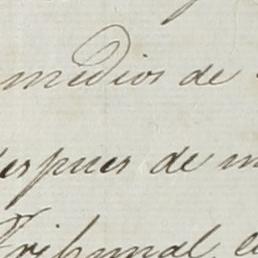 medios de
despues de
Tribunal